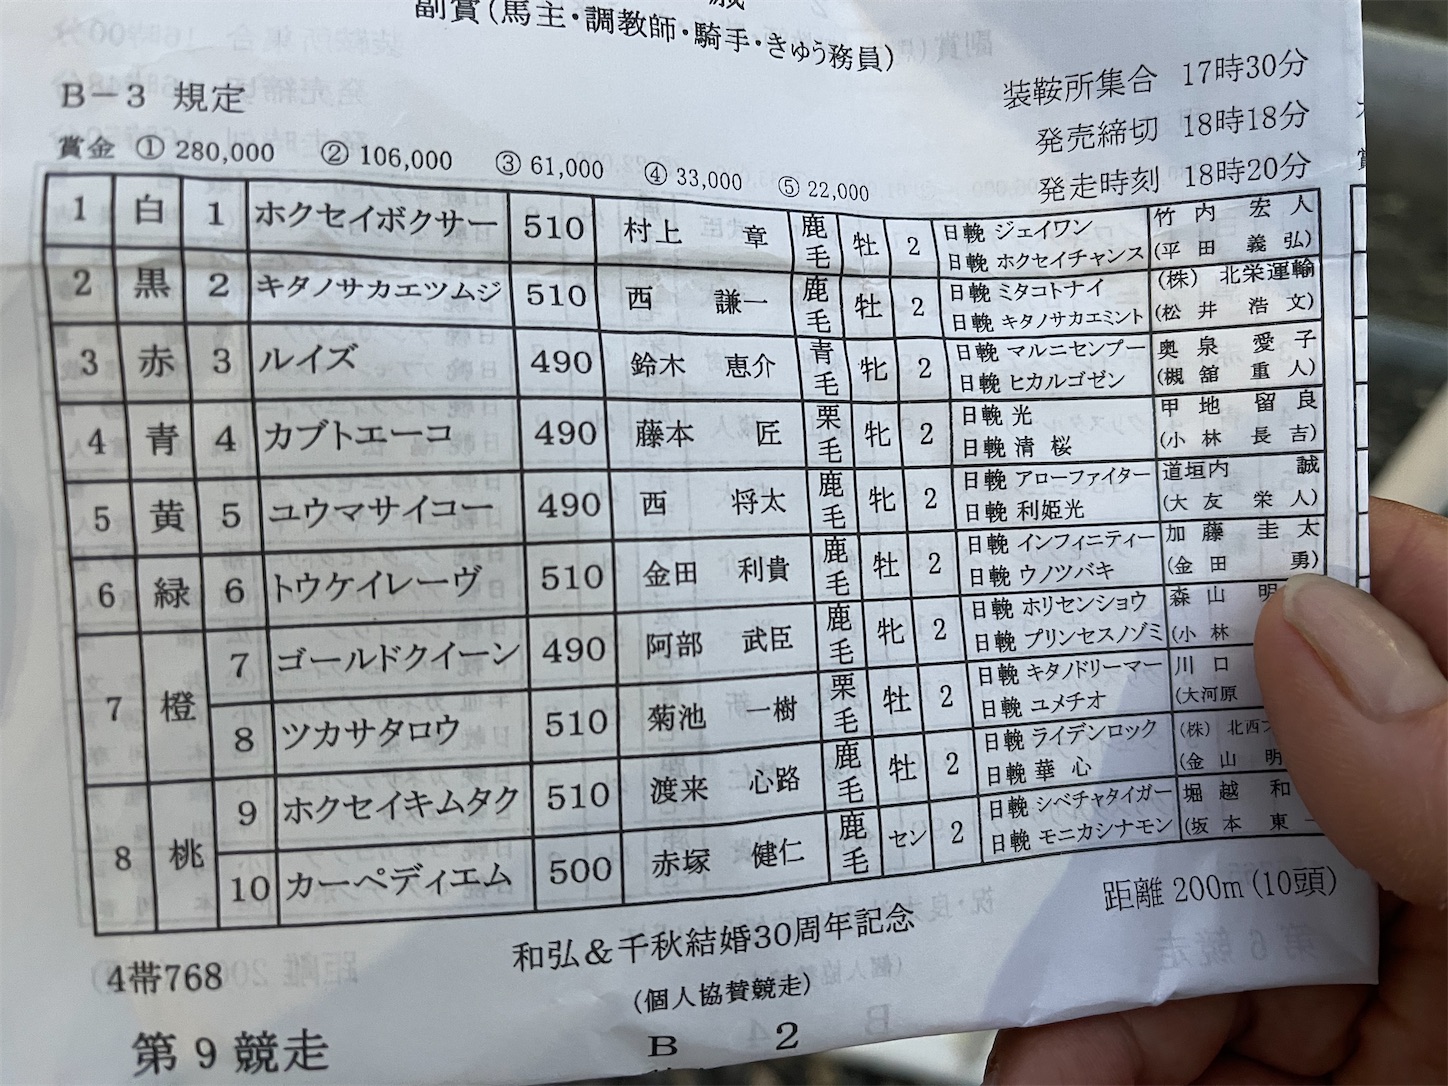 副賞(馬主・調教師・騎手・きゅう務員)
B－3 規定
装鞍所集合 17時30分
発売締切 18時18分
発走時刻 18時20分
賞金 ① 280,000 ② 106,000 ③ 61,000 ④ 33,000 ⑤ 22,000
1 白 1 ホクセイボクサー 510 村上 章 鹿毛 牡 2 日輓 ジェイワン 日輓 ホクセイチャンス 竹内 宏人 (平田 義弘)
2 黒 2 キタノサカエツムジ 510 西 謙一 鹿毛 牡 2 日輓 ミタコトナイ 日輓 キタノサカエミント (株) 北栄運輸 (松井 浩文)
3 赤 3 ルイズ 490 鈴木 恵介 青毛 牝 2 日輓 マルニセンプー 日輓 ヒカルゴゼン 奥泉 愛子 (槻舘 重人)
4 青 4 カブトエーコ 490 藤本 匠 栗毛 牝 2 日輓 光 日輓 清桜 甲地 留良 (小林 長吉)
5 黄 5 ユウマサイコー 490 西 将太 鹿毛 牝 2 日輓 アローファイター 日輓 利姫光 道垣内 誠 (大友 栄人)
6 緑 6 トウケイレーヴ 510 金田 利貴 鹿毛 牡 2 日輓 インフィニティー 日輓 ウノツバキ 加藤 圭太 (金田 勇)
7 橙 7 ゴールドクイーン 490 阿部 武臣 鹿毛 牝 2 日輓 ホリセンショウ 日輓 プリンセスノゾミ 森山 明 (小林
8 ツカサタロウ 510 菊池 一樹 栗毛 牡 2 日輓 キタノドリーマー 日輓 ユメチオ 川口 (大河原
8 桃 9 ホクセイキムタク 510 渡来 心路 鹿毛 牡 2 日輓 ライデンロック 日輓 華心 (株) 北西 (金山 明
10 カーペディエム 500 赤塚 健仁 鹿毛 セン 2 日輓 シベチャタイガー 日輓 モニカシナモン 堀越 和 (坂本 東一
距離 200m (10頭)
4帯768
和弘＆千秋結婚30周年記念
(個人協賛競走)
第 9 競走
B 2